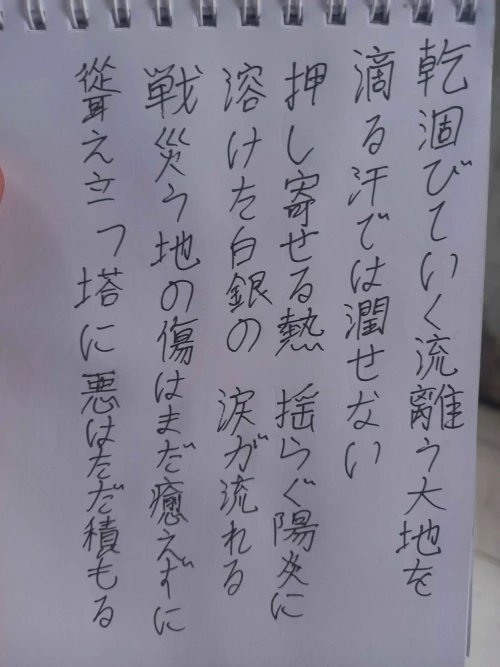 乾涸びていく流離う大地を
滴る汗では潤せない
押し寄せる熱 揺らぐ陽炎に
溶けた白銀の 涙が流れる
戦災う地の傷はまだ癒えずに
聳え立つ塔に悪はただ積もる